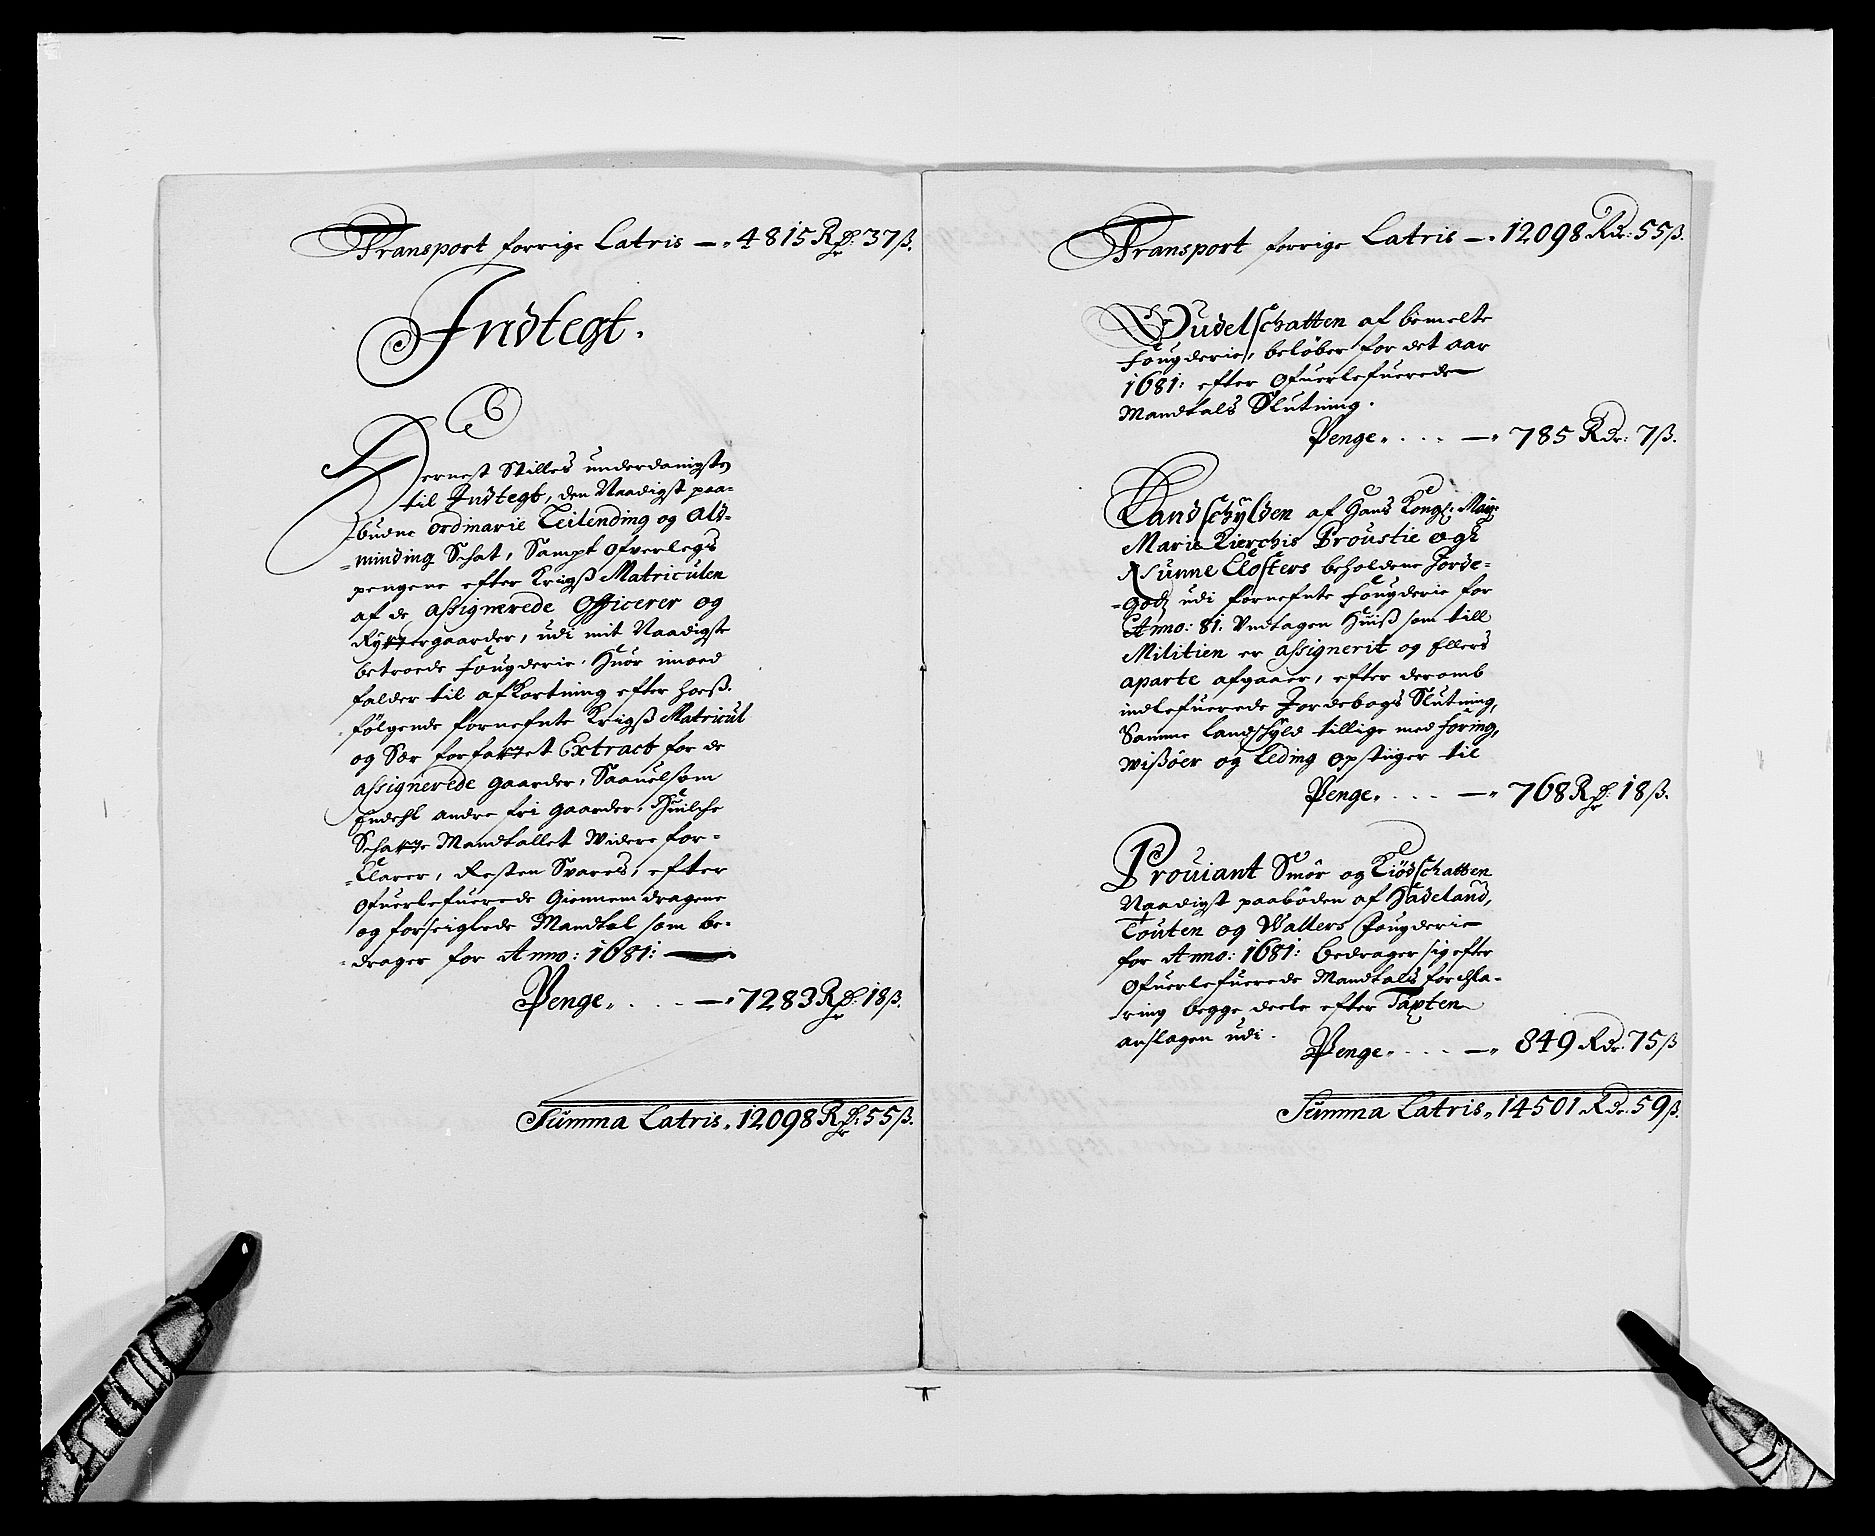 Transport forrige Latris — 4815 Rdr: 37 ß.
Indtegt.
Dernest Stilles underdanigste
til Indtegt, den Naadigst paa-
budne ordinarie Leilending og Al-
minding Schat, Sampt Ofverlegs
pengene efter Krigß Matriculen
af de assignerede Officerer og
Ryttergaarder, udi mit Naadigste
betroede fougderie, Huor imoed
falder til afkortning efter hoeß-
følgende fornefnte Krigß Matricul
og Sær forfattet Extract for de
assignerede gaarder, Saauelsom
Endehl andre fri gaarder, Huilche
Schatte Mandtallet Widere for-
Clarer, Resten Svares, efter
Ofuerlefuerede Giennemdragene
og forseiglede Mandtal som be-
drager for Anno: 1681:
Penge . . . — 7283 Rdr: 18 ß.
Summa Latris. 12098 Rdr: 55 ß.
Transport forrige Latris — 12098 Rdr: 55 ß.
Oudelschatten af bemelte
Fougderie, beløber for det aar
1681: efter Ofuerlefuerede
Mandtals Slutning.
Penge . . . — 785 Rdr: 7 ß.
Landschylden af Hans Kongl: May:
Marie Kierchis Proustie ogh
Nunne Closters beholdene Jorde-
godz udi fornefnte Fougderie for
Anno: 81. Undtagen Huiß som till
Militien er assignerit og Ellers
aparte afgaaer, efter deromb
indlefuerede Jordebogs Slutning,
Samme Landschyld tillige med foring,
wißøer og Leding opstiiger til
Penge . . . — 768 Rdr: 18 ß.
Prouiant Smør og Kiødschatten
Naadigst paabøden af Hadeland,
Touten og Walders Fougderie
for Anno: 1681: bedrager sig efter
Ofuerlefuerede Mandtals forchla-
ring begge deele efter Taxten
anslagen udi.
Penge . . . — 849 Rdr: 75 ß
Summa Latris. 14501 Rdr: 59 ß.